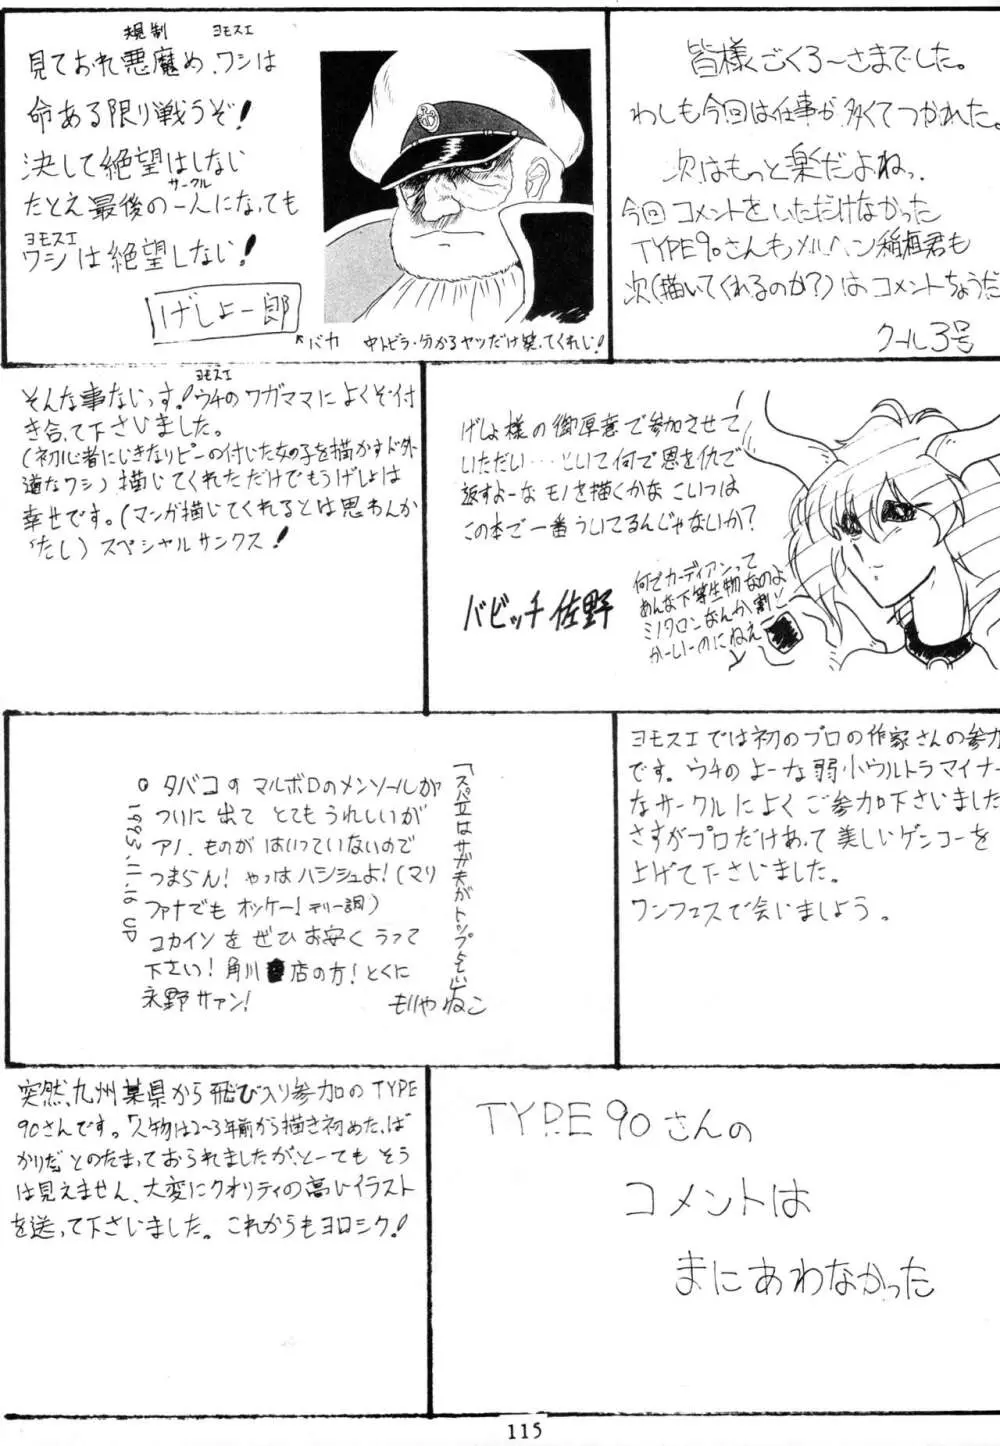 規制 ヨモスエ
見ておれ悪魔め、ワシは
命ある限り戦うぞ!
決して絶望はしない
サークル
たとえ最後の一人になっても
ヨモスエ
ワシは絶望しない!
げしょ一郎
↖バカ 中トビラ・分かるヤツだけ笑ってくれい!
皆様ごくろ〜さまでした。
わしも今回は仕事が多くてつかれた。
次はもっと楽だよね。
今回コメントをいただけなかった
TYPE90さんもメルヘン稲垣君も
次(描いてくれるのか?)はコメントちょうだ
クール3号
ヨモスエ
そんな事ないっす!ウチのワガママによくぞ付
き合って下さいました。
(初心者にいきなりピーの付いた女の子を描かすド外
道なワシ)描いてくれただけでもうげしょは
幸せです。(マンガ描いてくれるとは思わんか
ったし)スペシャルサンクス!
げしょ様の御厚意で参加させて
いただい・・・といて何で恩を仇で
返すよーなモノを描くかなこいつは
この本で一番ういてるんじゃないか?
バビッチ佐野
何でカーディアンって
あんな下等生物なのよ
ミノタロンなんか割と
かーいーのにねえ
「スパエはサガ夫がトップでい」
タバコのマルボロのメンソールが
ついに出て とてもうれしいが
アノ、ものが はいっていないので
つまらん! やっぱハシシュよ!(マリ
ファナでも オッケー! テリー調)
コカインを ぜひ お安く うって
下さい! 角川 店の方! とくに
永野サァン!
もりやねこ
1993.11.16 UP
ヨモスエでは初のプロの作家さんの参加
です。ウチのよーな弱小ウルトラマイナー
なサークルによくご参加下さいました
さすがプロだけあって美しいゲンコーを
上げて下さいました。
ワンフェスで会いましよう。
突然、九州某県から飛び入り参加のTYPE
90さんです。「人物は2〜3年前から描き初めたば
かりだ」とのたまっておられましたが、とーてもそう
は見えません、大変にクオリティの高いイラスト
を送って下さいました。これからもヨロシク!
TYPE90さんの
コメントは
まにあわなかった
115